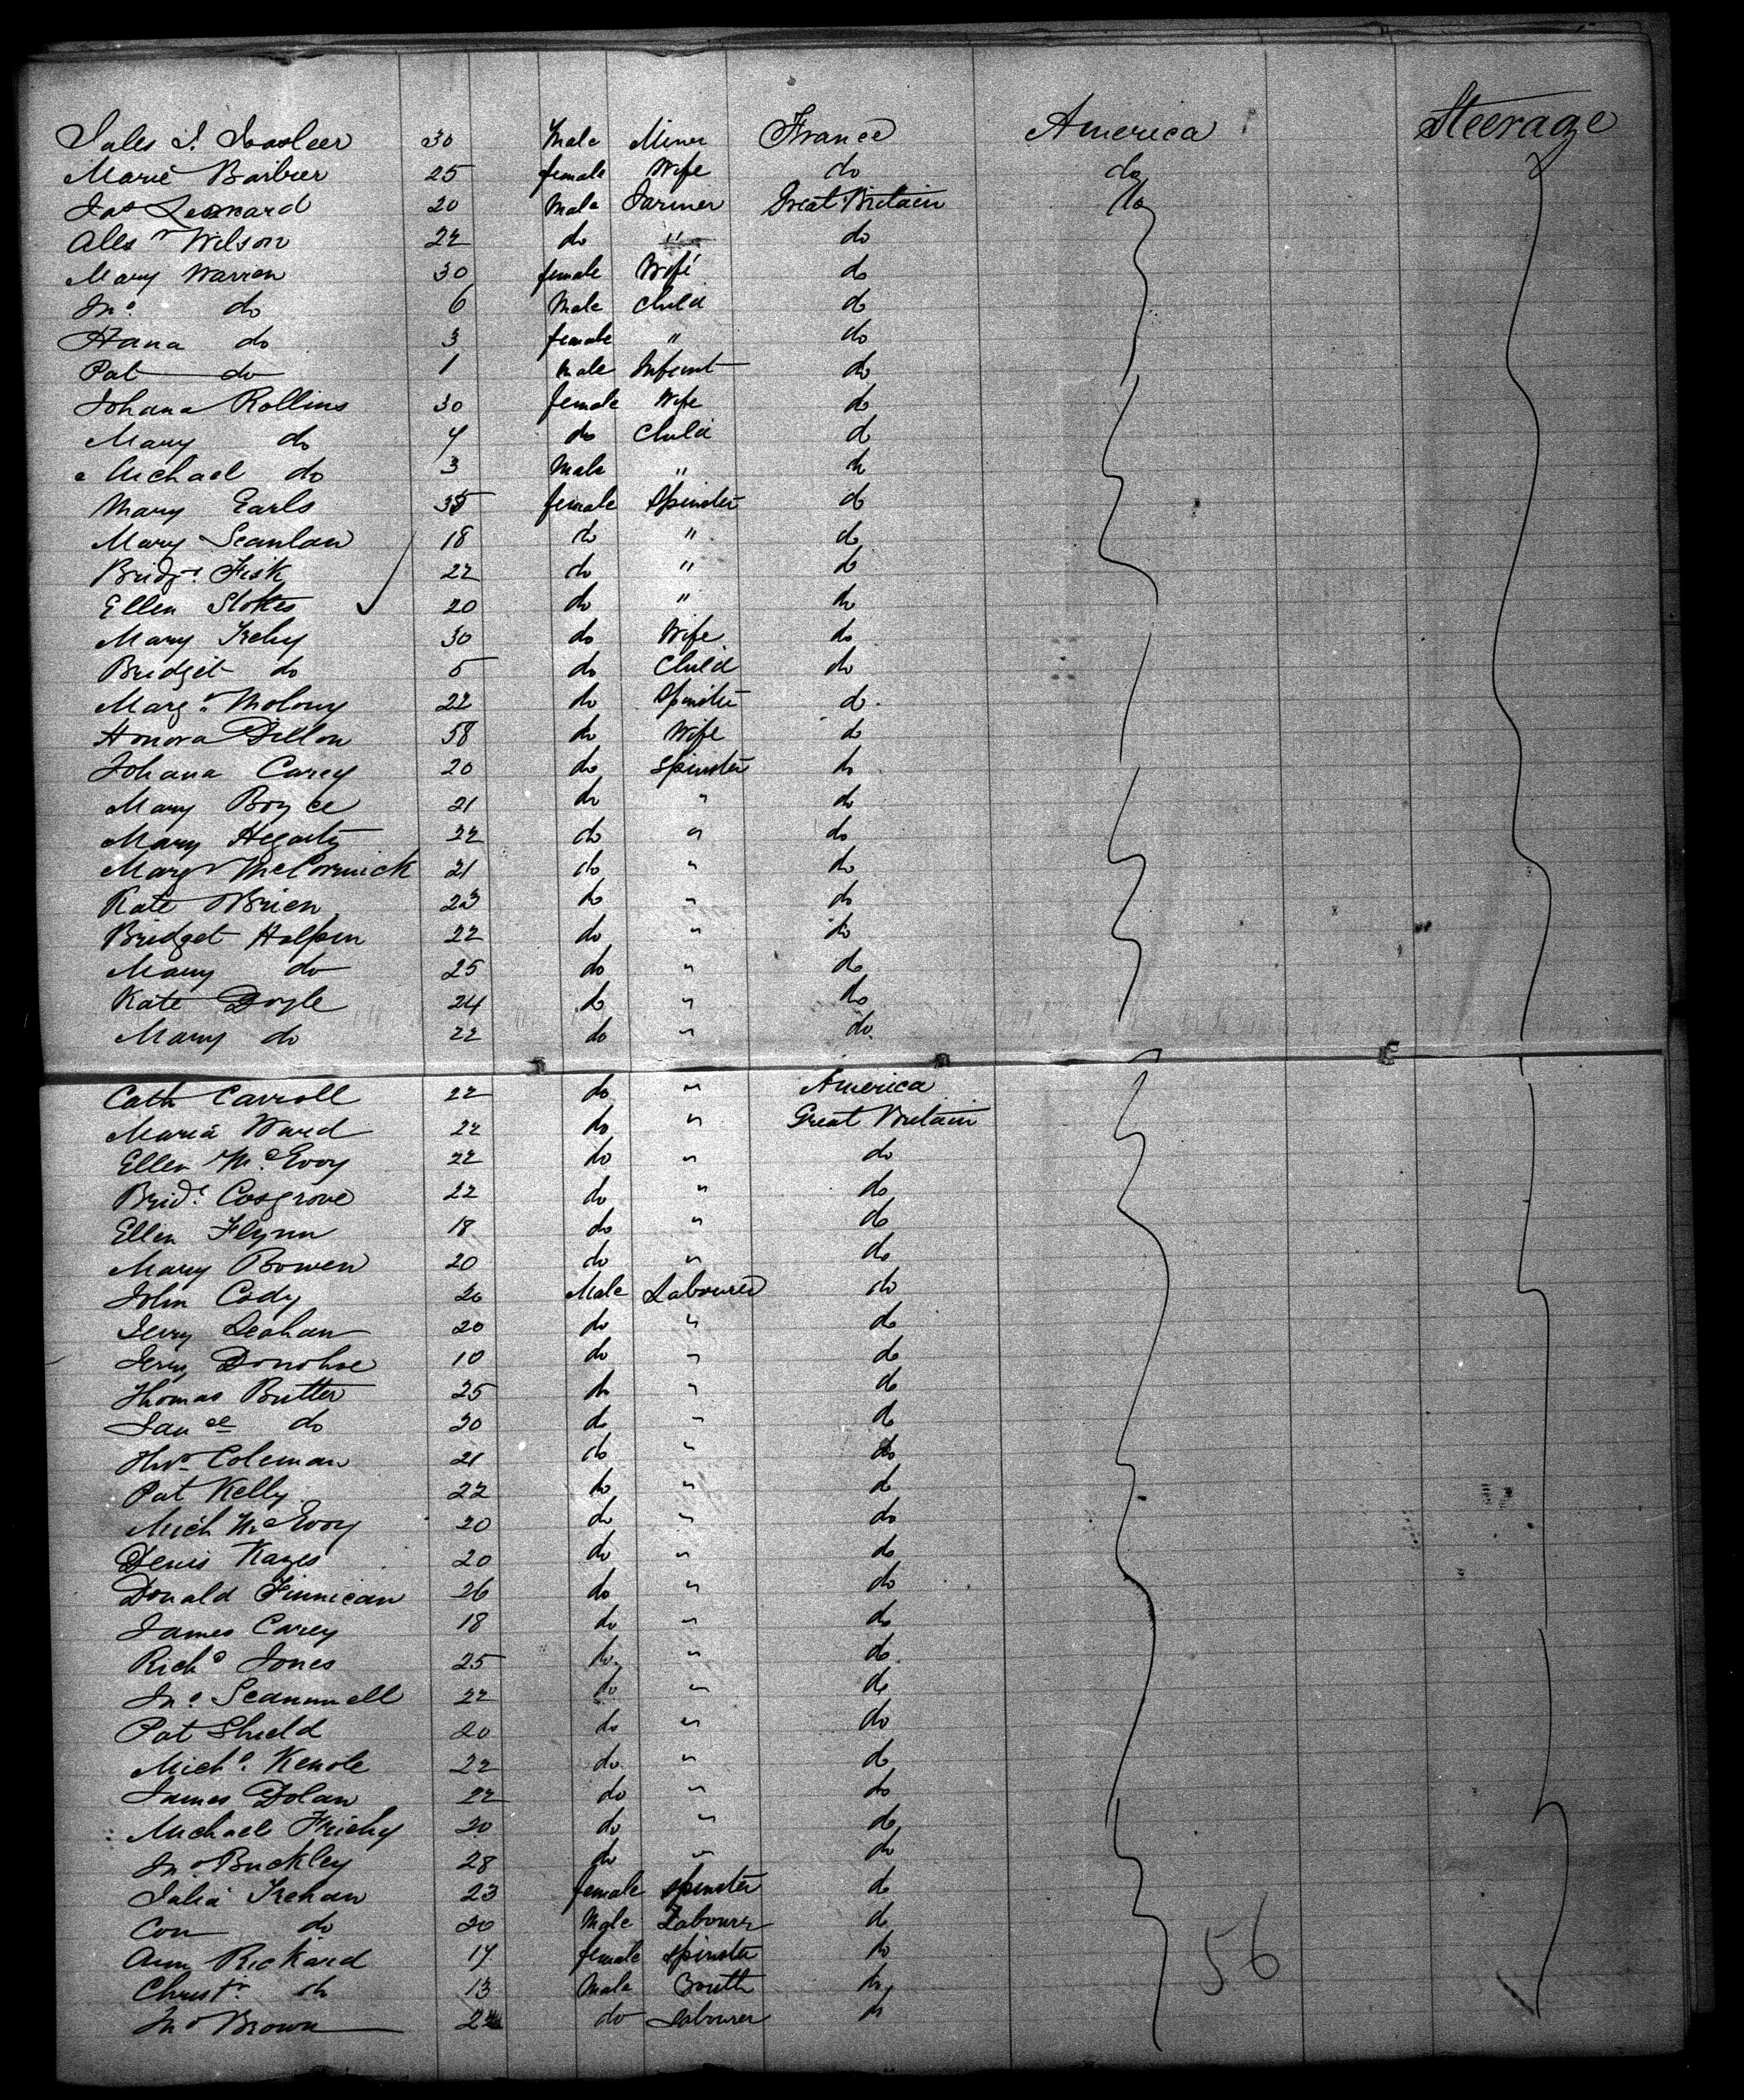 Jules J. 30 Male Miner France America Steerage
Marie Barbier 25 female Wife do do
Jas Leonard 20 Male Farmer Great Britain do
Alexr Wilson 22 do " do
Mary Warren 30 female Wife do
Jno. do 6 Male Child do
Hana do 3 female " do
Pat do 1 Male Infant do
Johana Rollins 30 female Wife do
Mary do 4 do Child do
Michael do 3 Male " do
Mary Earls 35 female Spinster do
Mary Scanlan 18 do " do
Bridgt Fisk 22 do " do
Ellen Stokes 20 do " do
Mary Trehy 30 do Wife do
Bridget do 5 do Child do
Margt Molony 22 do Spinster do
Honora Dillon 58 do Wife do
Johana Carey 20 do Spinster do
Mary Boyce 21 do " do
Mary Hegarty 22 do " do
Margt McCormick 21 do " do
Kate OBrien 23 do " do
Bridget Halpin 22 do " do
Mary do 25 do " do
Kate Doyle 24 do " do
Mary do 22 do " do
Cath Carroll 22 do " America
Maria Ward 22 do " Great Britain
Ellen McEvoy 22 do " do
Bridt Cosgrove 22 do " do
Ellen Flynn 18 do " do
Mary Bowen 20 do " do
John Cody 20 Male Labourer do
Jerry Leahan 20 do " do
Jerry Donohoe 10 do " do
Thomas Butler 25 do " do
Lauce do 20 do " do
Thos Coleman 21 do " do
Pat Kelly 22 do " do
Mich McEvoy 20 do " do
Denis Kayes 20 do " do
Donald Finnican 26 do " do
James Carey 18 do " do
Richd Jones 25 do " do
Jno. Scammell 22 do " do
Pat Shield 20 do " do
Michl 22 do " do
James Dolan 22 do " do
Michael 20 do " do
Jno Buckley 28 do " do
Julia Trehan 23 female Spinster do
Con do 20 Male Labourer do
Ann Rickard 17 female Spinster do
Christr. do 13 Male Youth do
Jno Brown 22 do Labourer do
56